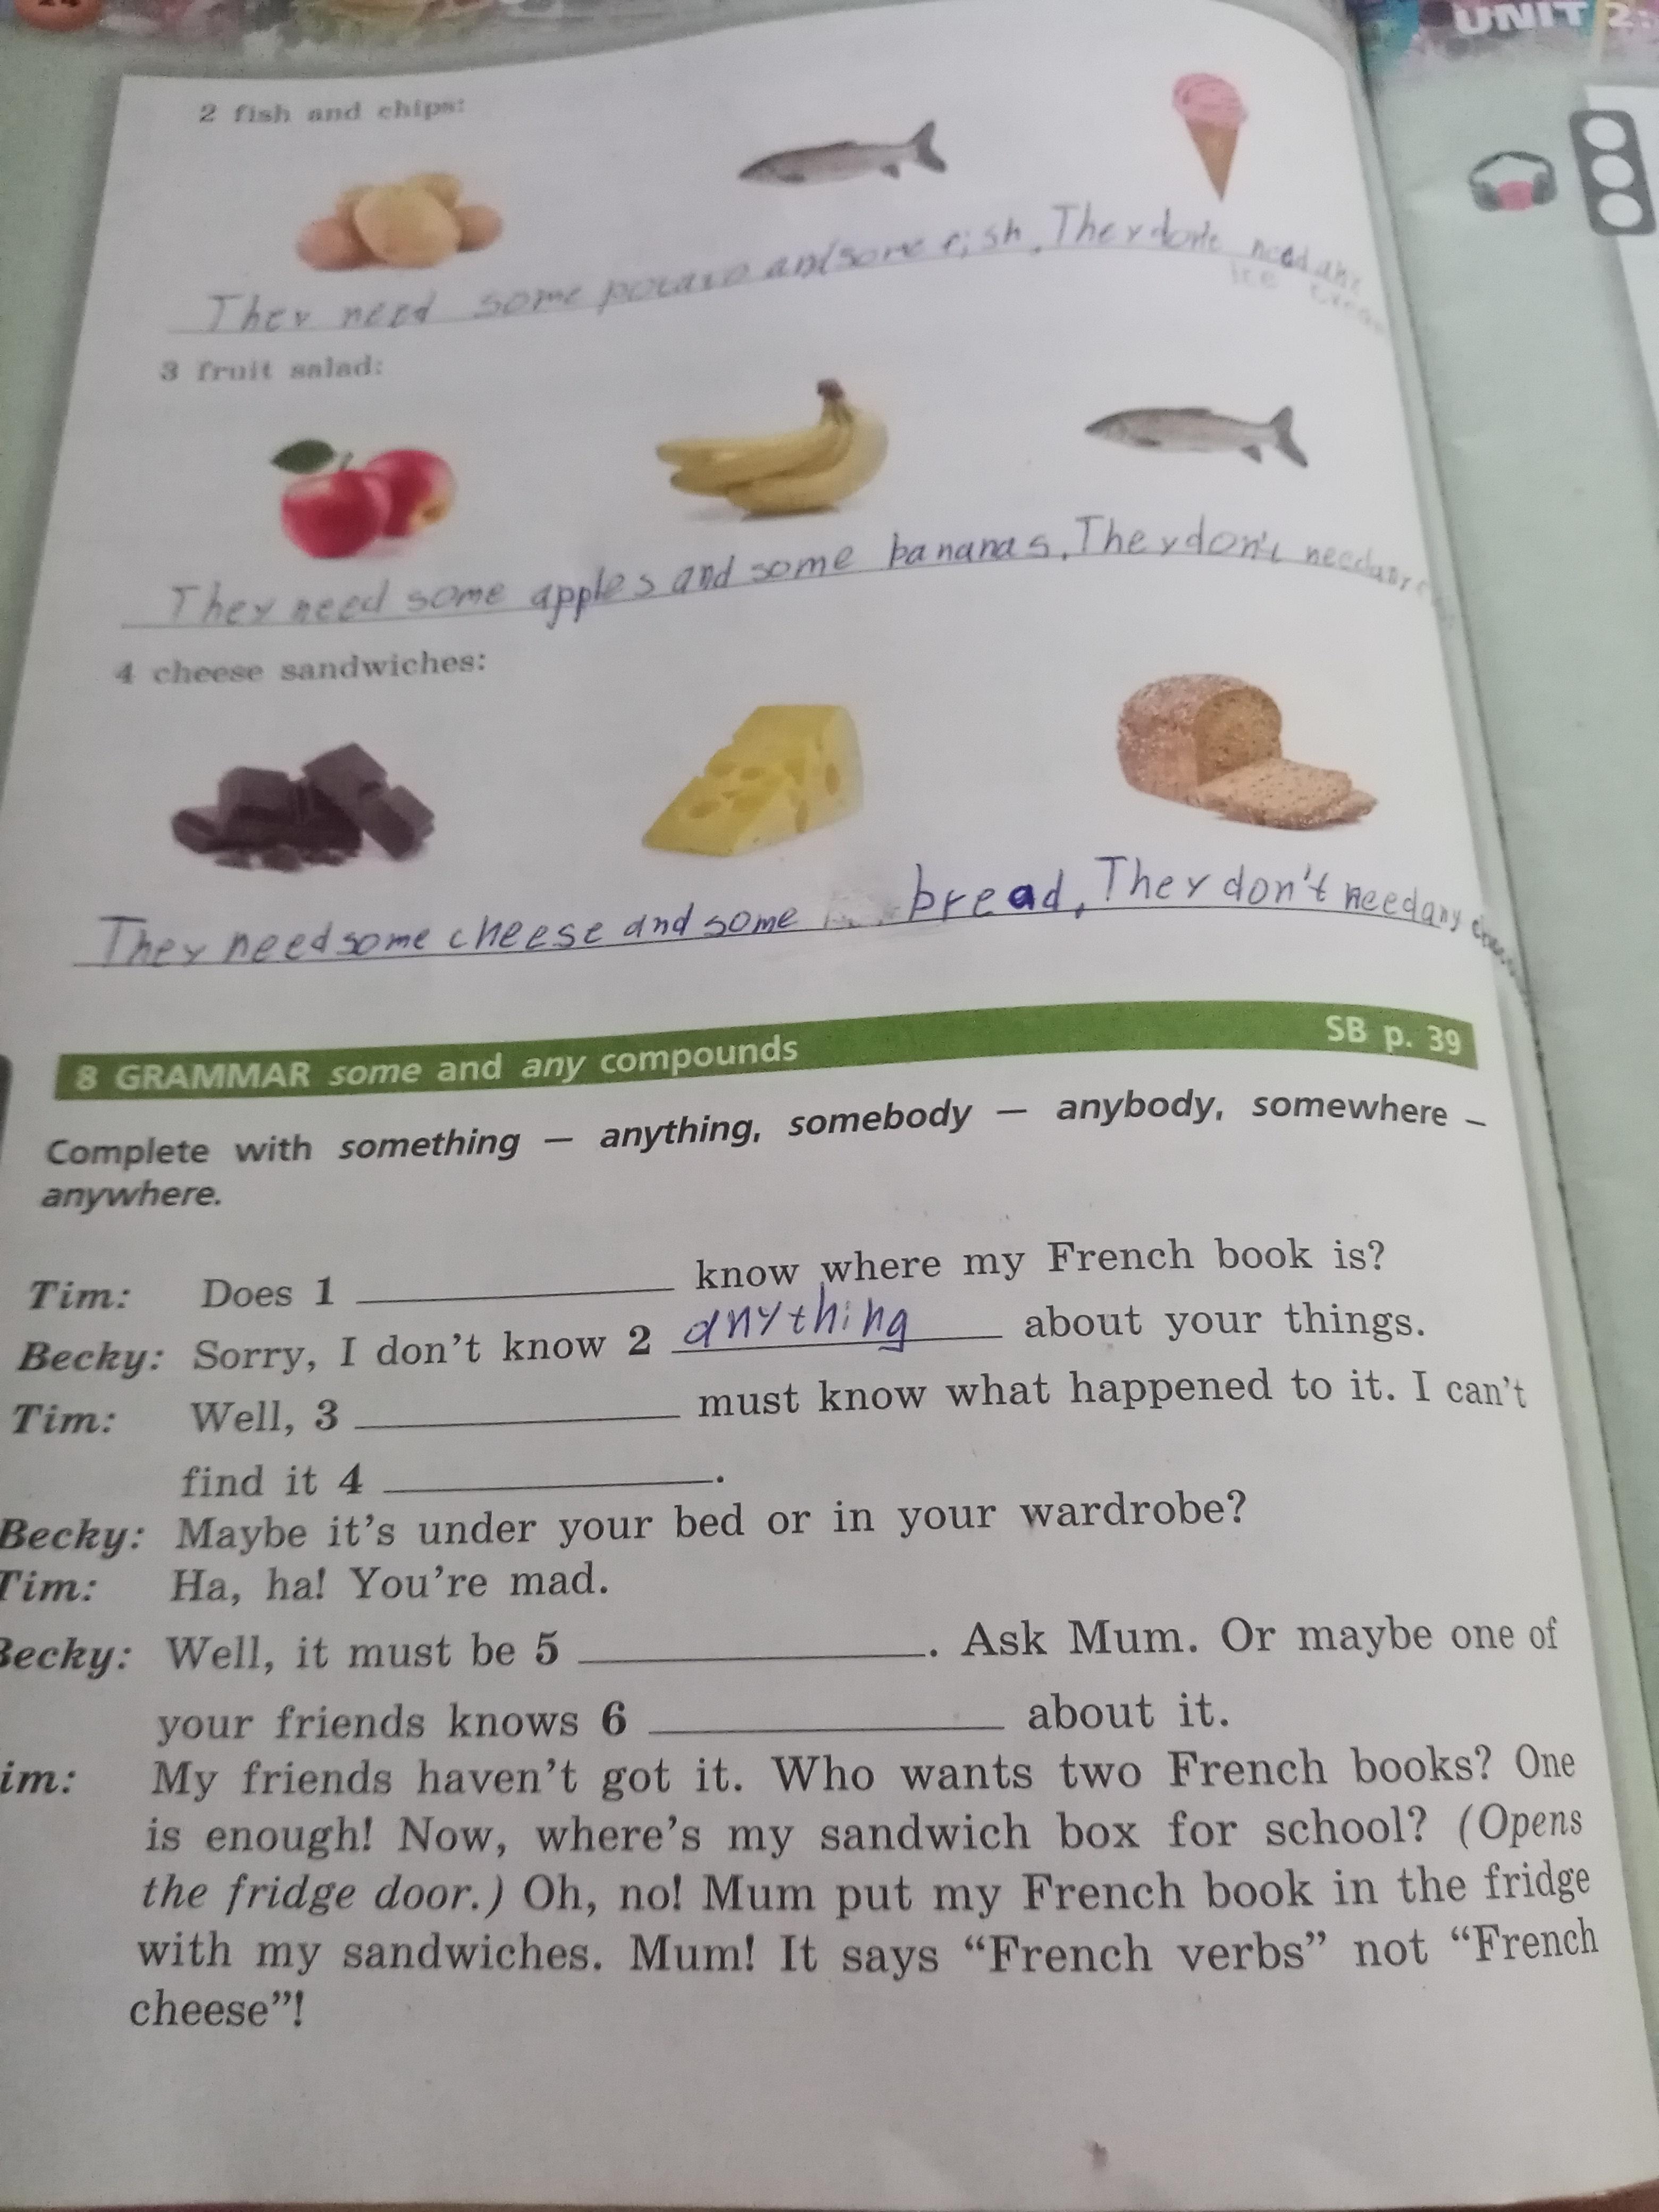 UNIT 2:
2 fish and chips:
They need some potato and some fish. They don't need any
ice cream
3 fruit salad:
They need some apples and some bananas. They don't need any
4 cheese sandwiches:
They need some cheese and some bread, They don't need any
8 GRAMMAR some and any compounds SB p. 39
Complete with something – anything, somebody – anybody, somewhere –
anywhere.
Tim: Does 1 ____ know where my French book is?
Becky: Sorry, I don't know 2 anything about your things.
Tim: Well, 3 ____ must know what happened to it. I can't
find it 4 ____.
Becky: Maybe it's under your bed or in your wardrobe?
Tim: Ha, ha! You're mad.
Becky: Well, it must be 5 ____. Ask Mum. Or maybe one of
your friends knows 6 ____ about it.
im: My friends haven't got it. Who wants two French books? One
is enough! Now, where's my sandwich box for school? (Opens
the fridge door.) Oh, no! Mum put my French book in the fridge
with my sandwiches. Mum! It says “French verbs” not “French
cheese”!